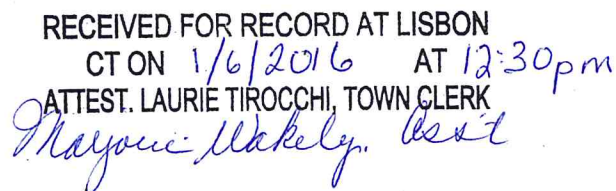 RECEIVED FOR RECORD AT LISBON
CT ON 1/6/2016 AT 12:30pm
ATTEST. LAURIE TIROCCHI, TOWN CLERK
Marjorie Wakely. Ass't